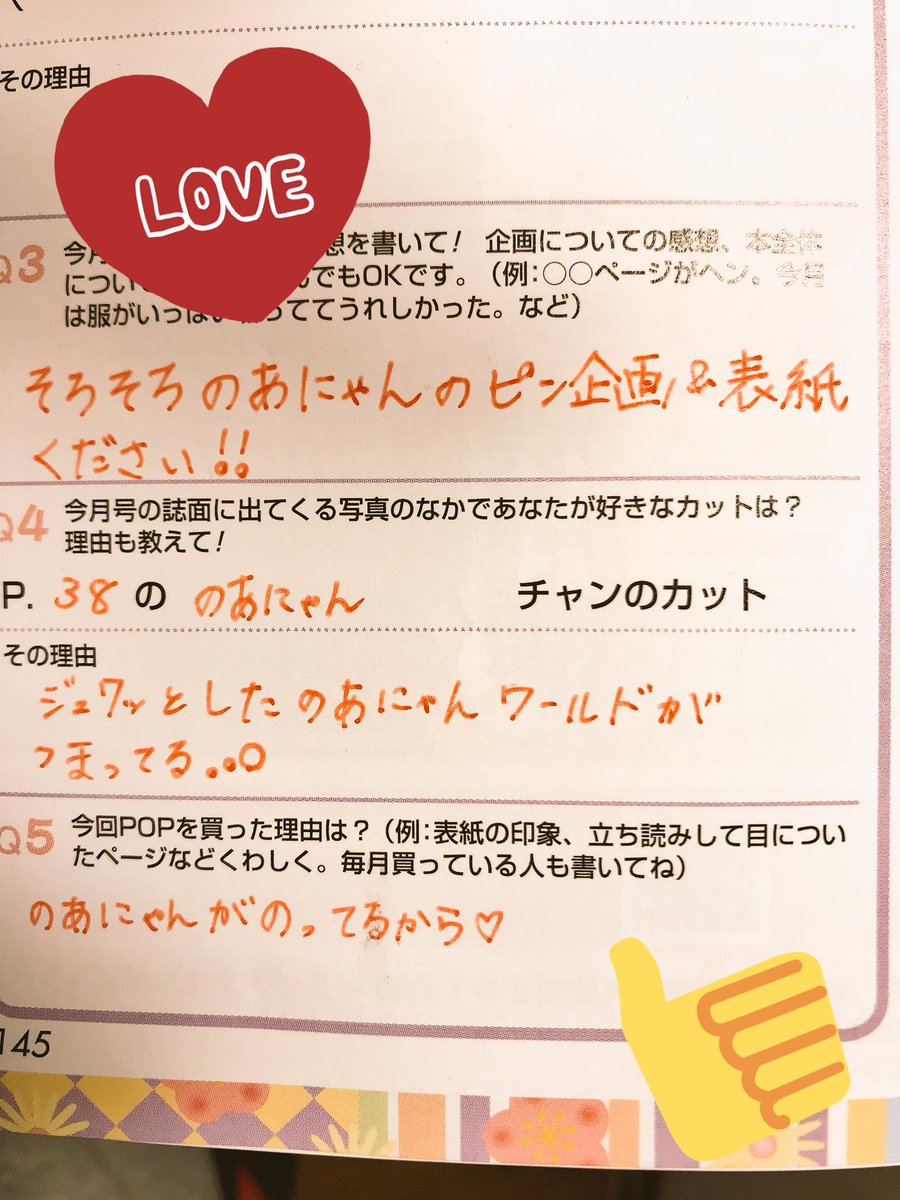 その理由
LOVE
Q3 今月 想を書いて! 企画についての感想、本全体
につい んでもOKです。(例:○○ページがヘン。今月
は服がいっぱい ってうれしかった。など)
そろそろのあにゃんのピン企画&表紙
ください!!
Q4 今月号の誌面に出てくる写真のなかであなたが好きなカットは?
理由も教えて!
P. 38 の のあにゃん チャンのカット
その理由
ジュワッとしたのあにゃんワールドが
つまってる..○
Q5 今回POPを買った理由は?(例:表紙の印象、立ち読みして目につい
たページなどくわしく。毎月買っている人も書いてね)
のあにゃんがのってるから♡
145